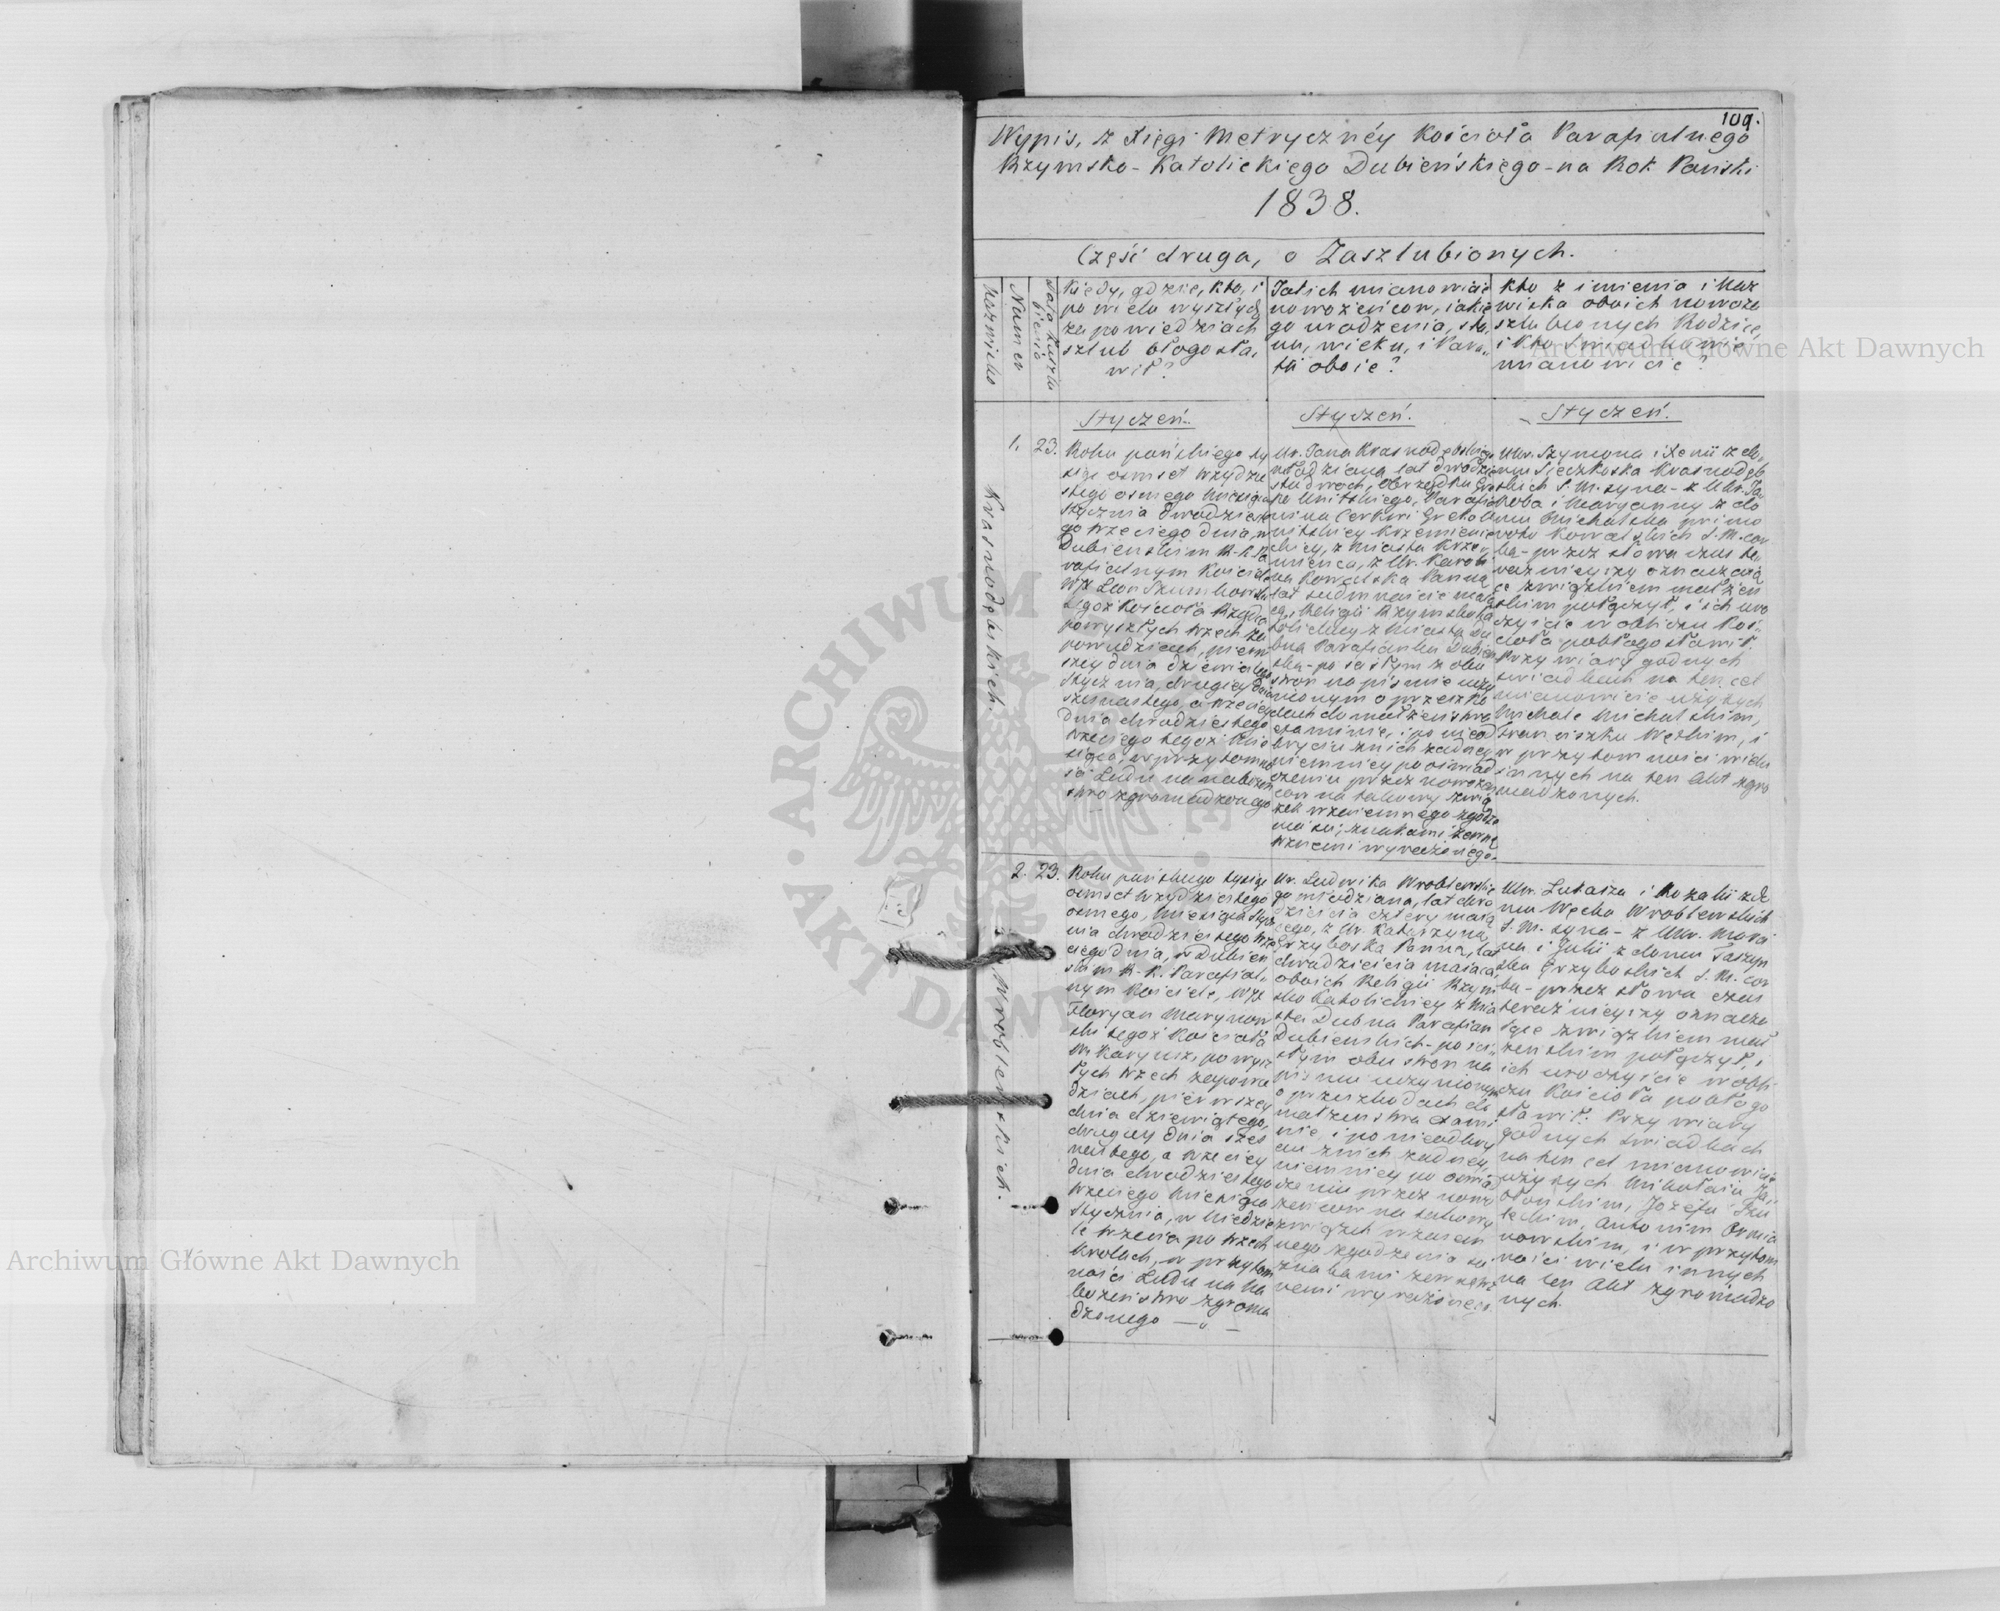 109.
Wypis, z Xięgi Metrycznéy Kościoła Parafialnego
Rzymsko-Katolickiego Dubieńskiego-na Rok Pański
1838.
Część druga, o Zaszlubionych.
Nazwisko
Numer
Data
Kiedy, gdzie, kto, i
po wielu wyszłych
zapowiedziach
szlub błogosła,
wił?
Jakich mianowicie
nowożeńcow, iakie
go urodzenia, sta,
nu, wieku, i Para,,
fii oboie?
Kto z imienia i Naz
wiska oboich nowoza
szlubionych Rodzice,
i Kto świadkowie
mianowicie?
Styczeń.
Styczeń.
Styczeń.
1.
23.
Krasnodębskich.
Roku pańskiego ty
siąc osmset trzydzie
stego osmego Miesiąca
Stycznia dwodzieste
go trzeciego dnia, w
Dubienskim R-K. Pa
rafialnym Kościele
WJX Leon
tegoż Kościoła
powyszłych trzech za
powiedziach, pierw
szey dnia dziewiątego
Stycznia, drugiey dnia
szesnastego, a trzeciey
dnia dwodziestego
trzeciego tegoż Mie
siąca, w przytomno
ści Ludu na nabożeń
stwo zgromadzonego
Ur. Jana Krasnodębskiego
młodziana lat dwodzie
stu dwoch, Obrządku Gre
ko Unitskiego, Parafia
nina Cerkwi Greko U
nitskiey Krzemienie
ckiey, z Miasta Krze,,
mieńca, z Ur. Karoli
ną Kowalską Panną
lat siedmnaście maią
cą, Religii Rzymsko Ka
tolickiey z Miasta Du
bna Parafianką Dubień
ską-po ścisłym z obu
stron na piśmie uczy
nionym o przeszko
dach do małżeństwa
examinie, i po nieod
kryciu z nich żadney
niemniey po oświad
czeniu przez nowożeń
cow na takowy zwią
zek wzaiemnego zgodze
nia się, znakami zewnę
trznemi wyrażonego.
Uur. Szymona i Xenii z do,
mu Sieczkoska Krasnodęb
skich S. M. syna-z Uur. Ja
koba i Maryanny z do
mu Michalska primo
voto Kowalskich S. M. cor
ką-przez słowa czas te,,
raznieyszy oznaczaią
ce związkiem małżeń
skim połączył, i ich uro
czyście w obliczu Koś,,
cioła pobłogosławił.
Przy wiary godnych
świadkach na ten cel
mianowicie użytych
Michale Michalskim,
Franciszku Węskim, i
w przytomności wielu
innych na ten Akt zgro
madzonych.
2.
23.
Wroblewskich.
Roku pańskiego tysiąc
osmset trzydziestego
osmego, Miesiąca Stycz
nia dwodziestego trze
ciego dnia, w Dubień
skim R-K. Parafial,
nym Kościele, WJX
Floryan Marynow
ski tegoż Kościoła
Wikaryusz, po wysz
łych trzech zapowie
dziach, pierwszey
dnia dziewiątego,
drugiey dnia szes
nastego, a trzeciey
dnia dwodziestego
trzeciego Miesiąca
Stycznia, w Niedzie
lę trzecią po trzech
Krolach, w przytom
ności Ludu na na
bożeństwo zgroma
dzonego
Ur. Ludwika Wroblewskie
go młodziana, lat dwo
dzieścia cztery maią
cego, z Ur. Katarzyną
Grzyboska Panną, lat
dwadzieścia maiącą,
oboich Religii Rzym
sko Katolickiey z Mia
sta Dubna Parafian
Dubienskich-po ści,,
słym obu stron na
piśmie uczynionym
o przeszkodach do
małżeństwa exami
nie, i po nieodkry
ciu z nich żadney,
niemniey po oświa
dczeniu przez nowo
żeńcow na takowy
związek wzaiem
nego zgodzenia się
znakami zewnętrz
nemi wyrażonego.
Uur. Łukasza i Rozalii z do
mu Węcka Wroblewskich
S. M. syna-z Uur. Marci
na i Julii z domu Taszyn
ska Grzyboskich S. M. cor
ką-przez słowa czas
teraźnieyszy oznacza
iące związkiem mał
żenskim połączył, i
ich uroczyście w obli
czu Kościoła pobłogo
sławił. Przy wiary
godnych świadkach
na ten cel mianowicie
użytych Mikołaiu Ja,,
Jozefie
Antonim
i w przytom
ności wielu innych
na ten Akt zgromadzo
nych.
Archiwum Główne Akt Dawnych
Archiwum Główne Akt Dawnych
ARCHIWUM GŁÓWNE AKT DAWNYCH